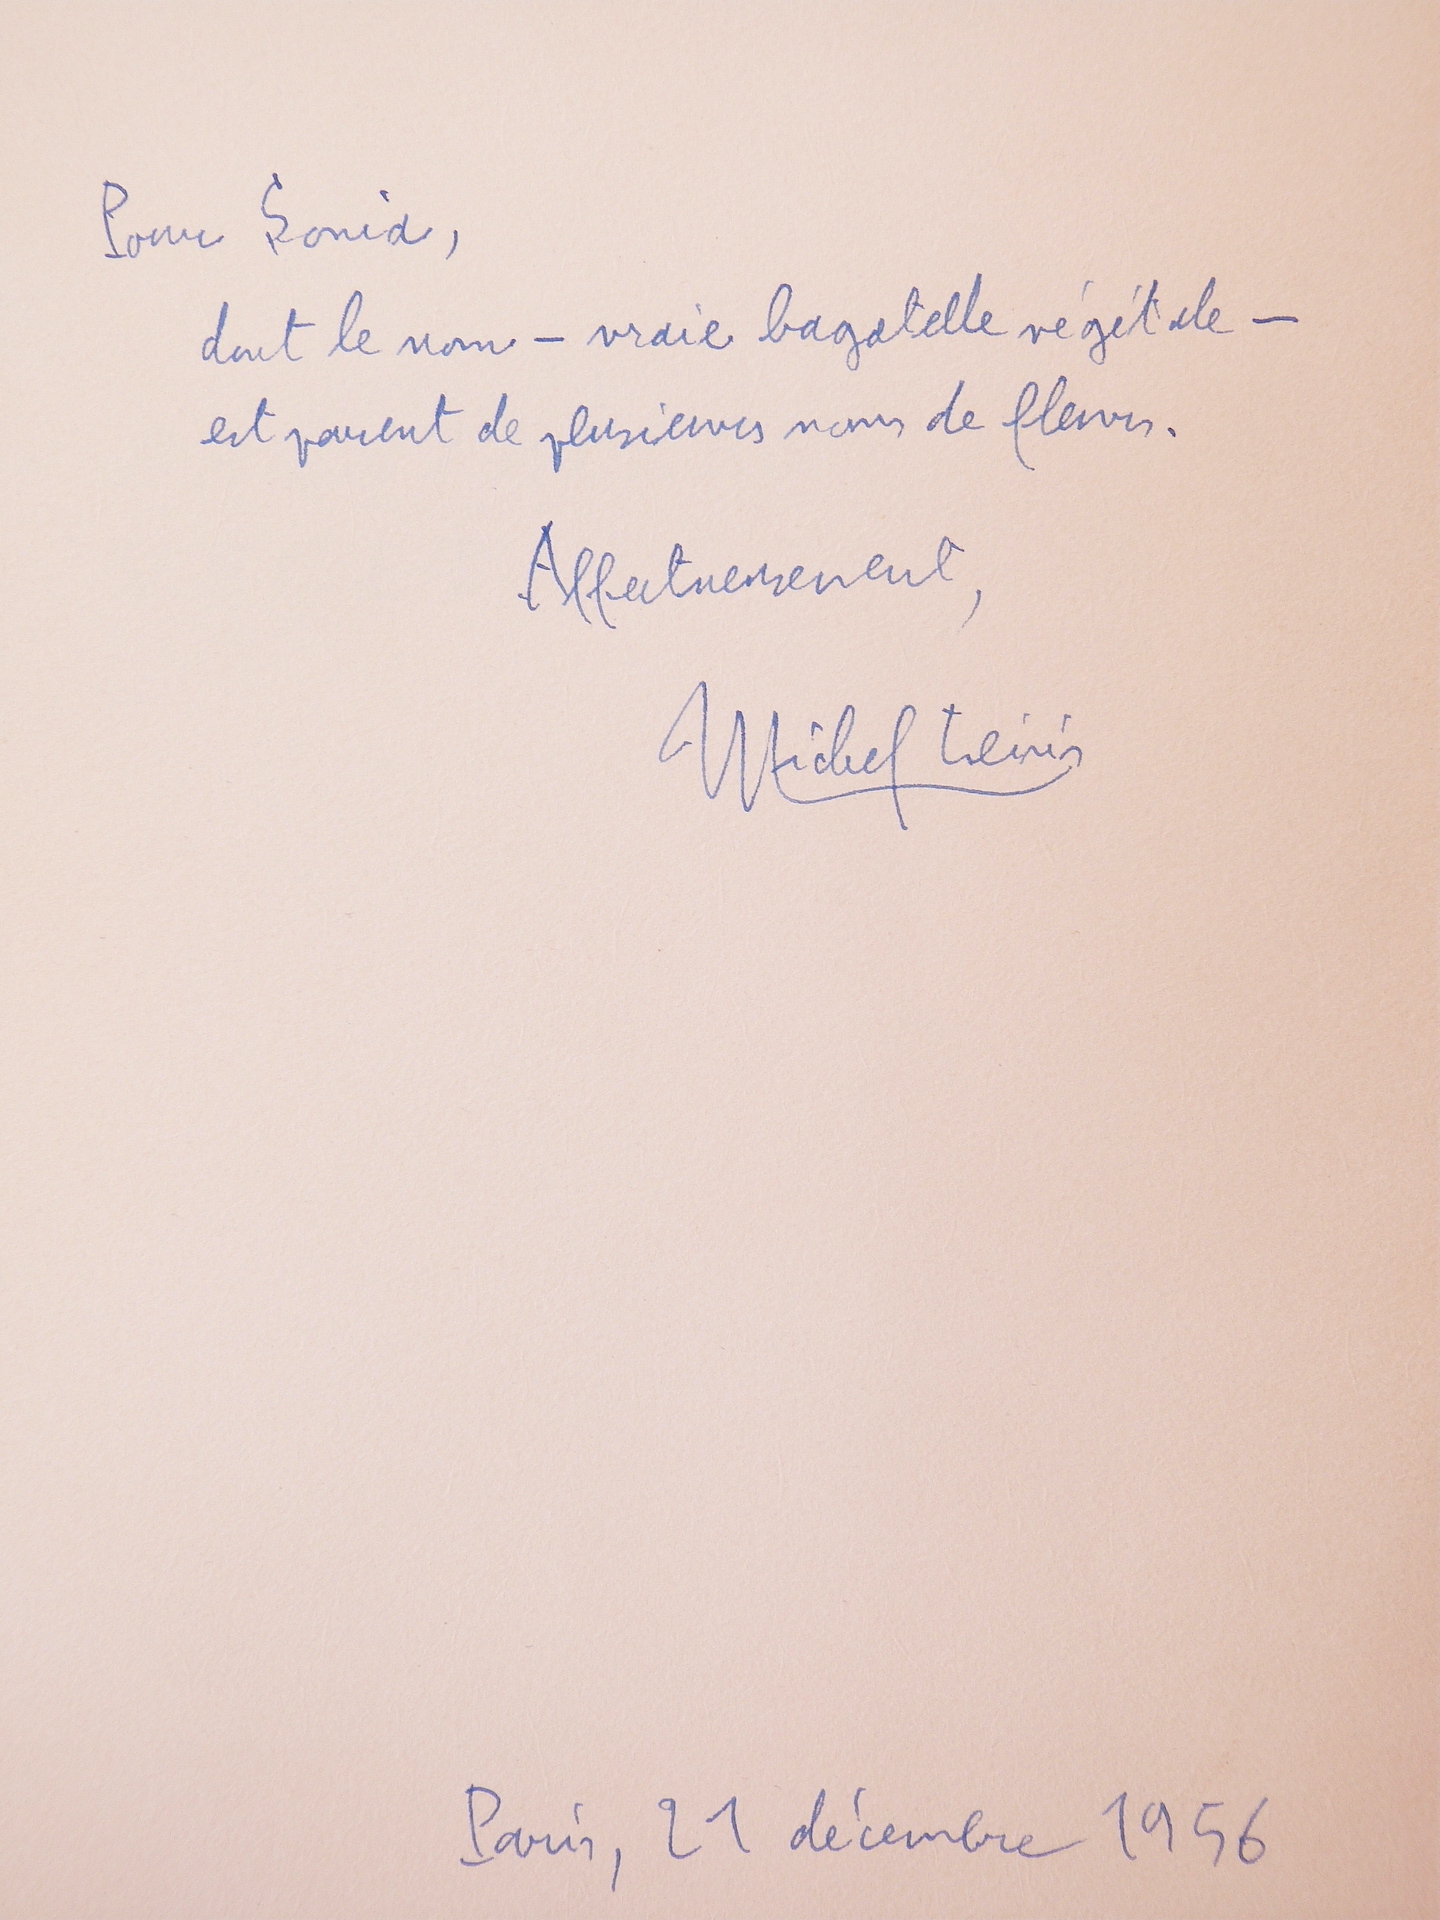 Pour Sonia,
dont le nom – vraie bagatelle végétale –
est parent de plusieurs noms de fleurs.
Affectueusement,
Michel Leiris
Paris, 21 décembre 1956